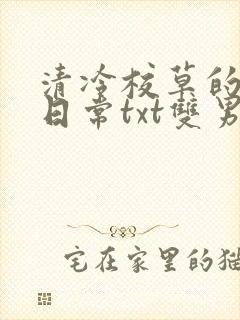 清冷校草的
日常txt雙男
宅在家里的猫